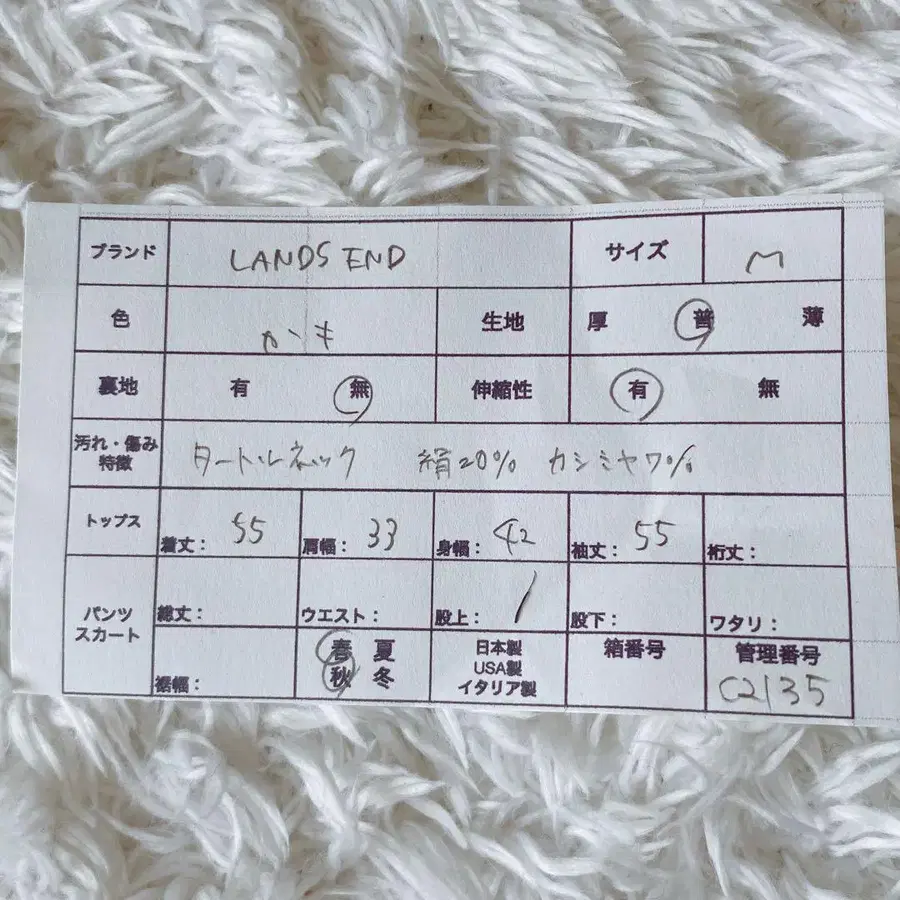 ブランド LANDS END サイズ M
色 カーキ 生地 厚 普 薄
裏地 有 無 伸縮性 有 無
汚れ・傷み
特徴 タートルネック 絹20% カシミヤ7%
トップス 着丈: 55 肩幅: 33 身幅: 42 袖丈: 55 裄丈:
パンツ
スカート
総丈: ウエスト: 股上: / 股下: ワタリ:
裾幅:
春 夏
秋 冬
日本製
USA製
イタリア製
箱番号
管理番号
C2135